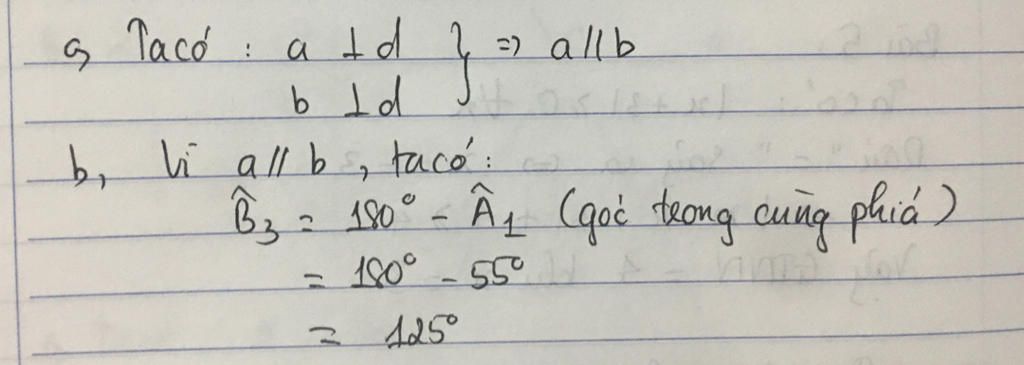 a, Ta có : a ⊥ d } => a // b
b ⊥ d
b, Vì a // b , ta có :
B̂₃ = 180° - Â₁ (góc trong cùng phía)
= 180° - 55°
= 125°